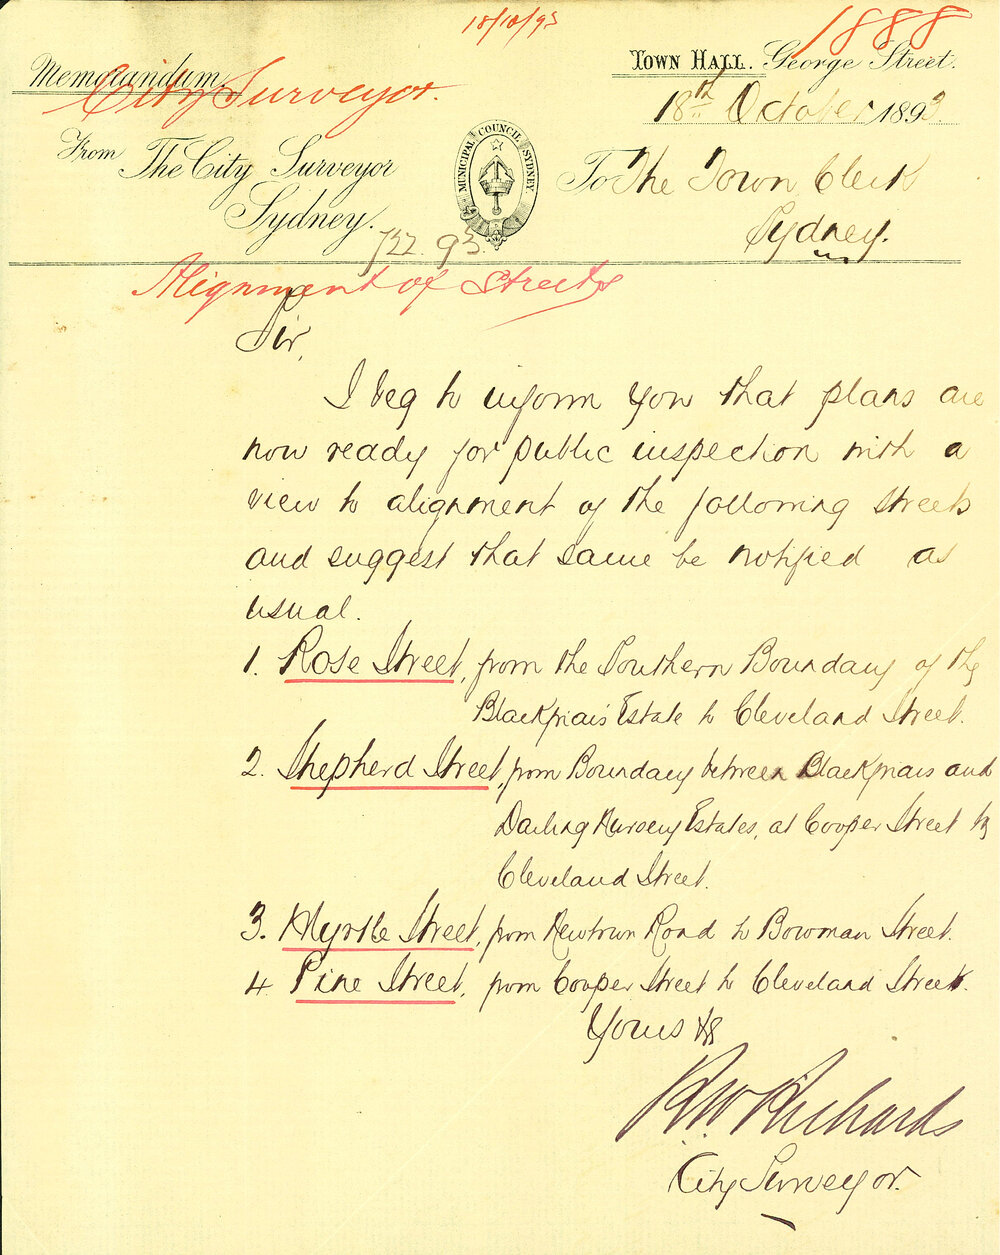 18/10/93
1888
Memorandum
City Surveyor.
TOWN HALL. George Street.
18th October 1893.
From The City Surveyor
Sydney.
MUNICIPAL COUNCIL SYDNEY
To The Town Clerk
Sydney.
722. 93.
Alignment of Streets
Sir,
I beg to inform you that plans are
now ready for public inspection with a
view to alignment of the following streets
and suggest that same be notified as
usual.
1. Rose Street, from the Southern Boundary of the
Blackfriars Estate to Cleveland Street.
2. Shepherd Street, from Boundary between Blackfriars and
Darling Nursery Estates, at Cooper Street to
Cleveland Street.
3. Myrtle Street, from Newtown Road to Bowman Street.
4. Pine Street, from Cooper Street to Cleveland Street.
Yours &c
R W Richards
City Surveyor.